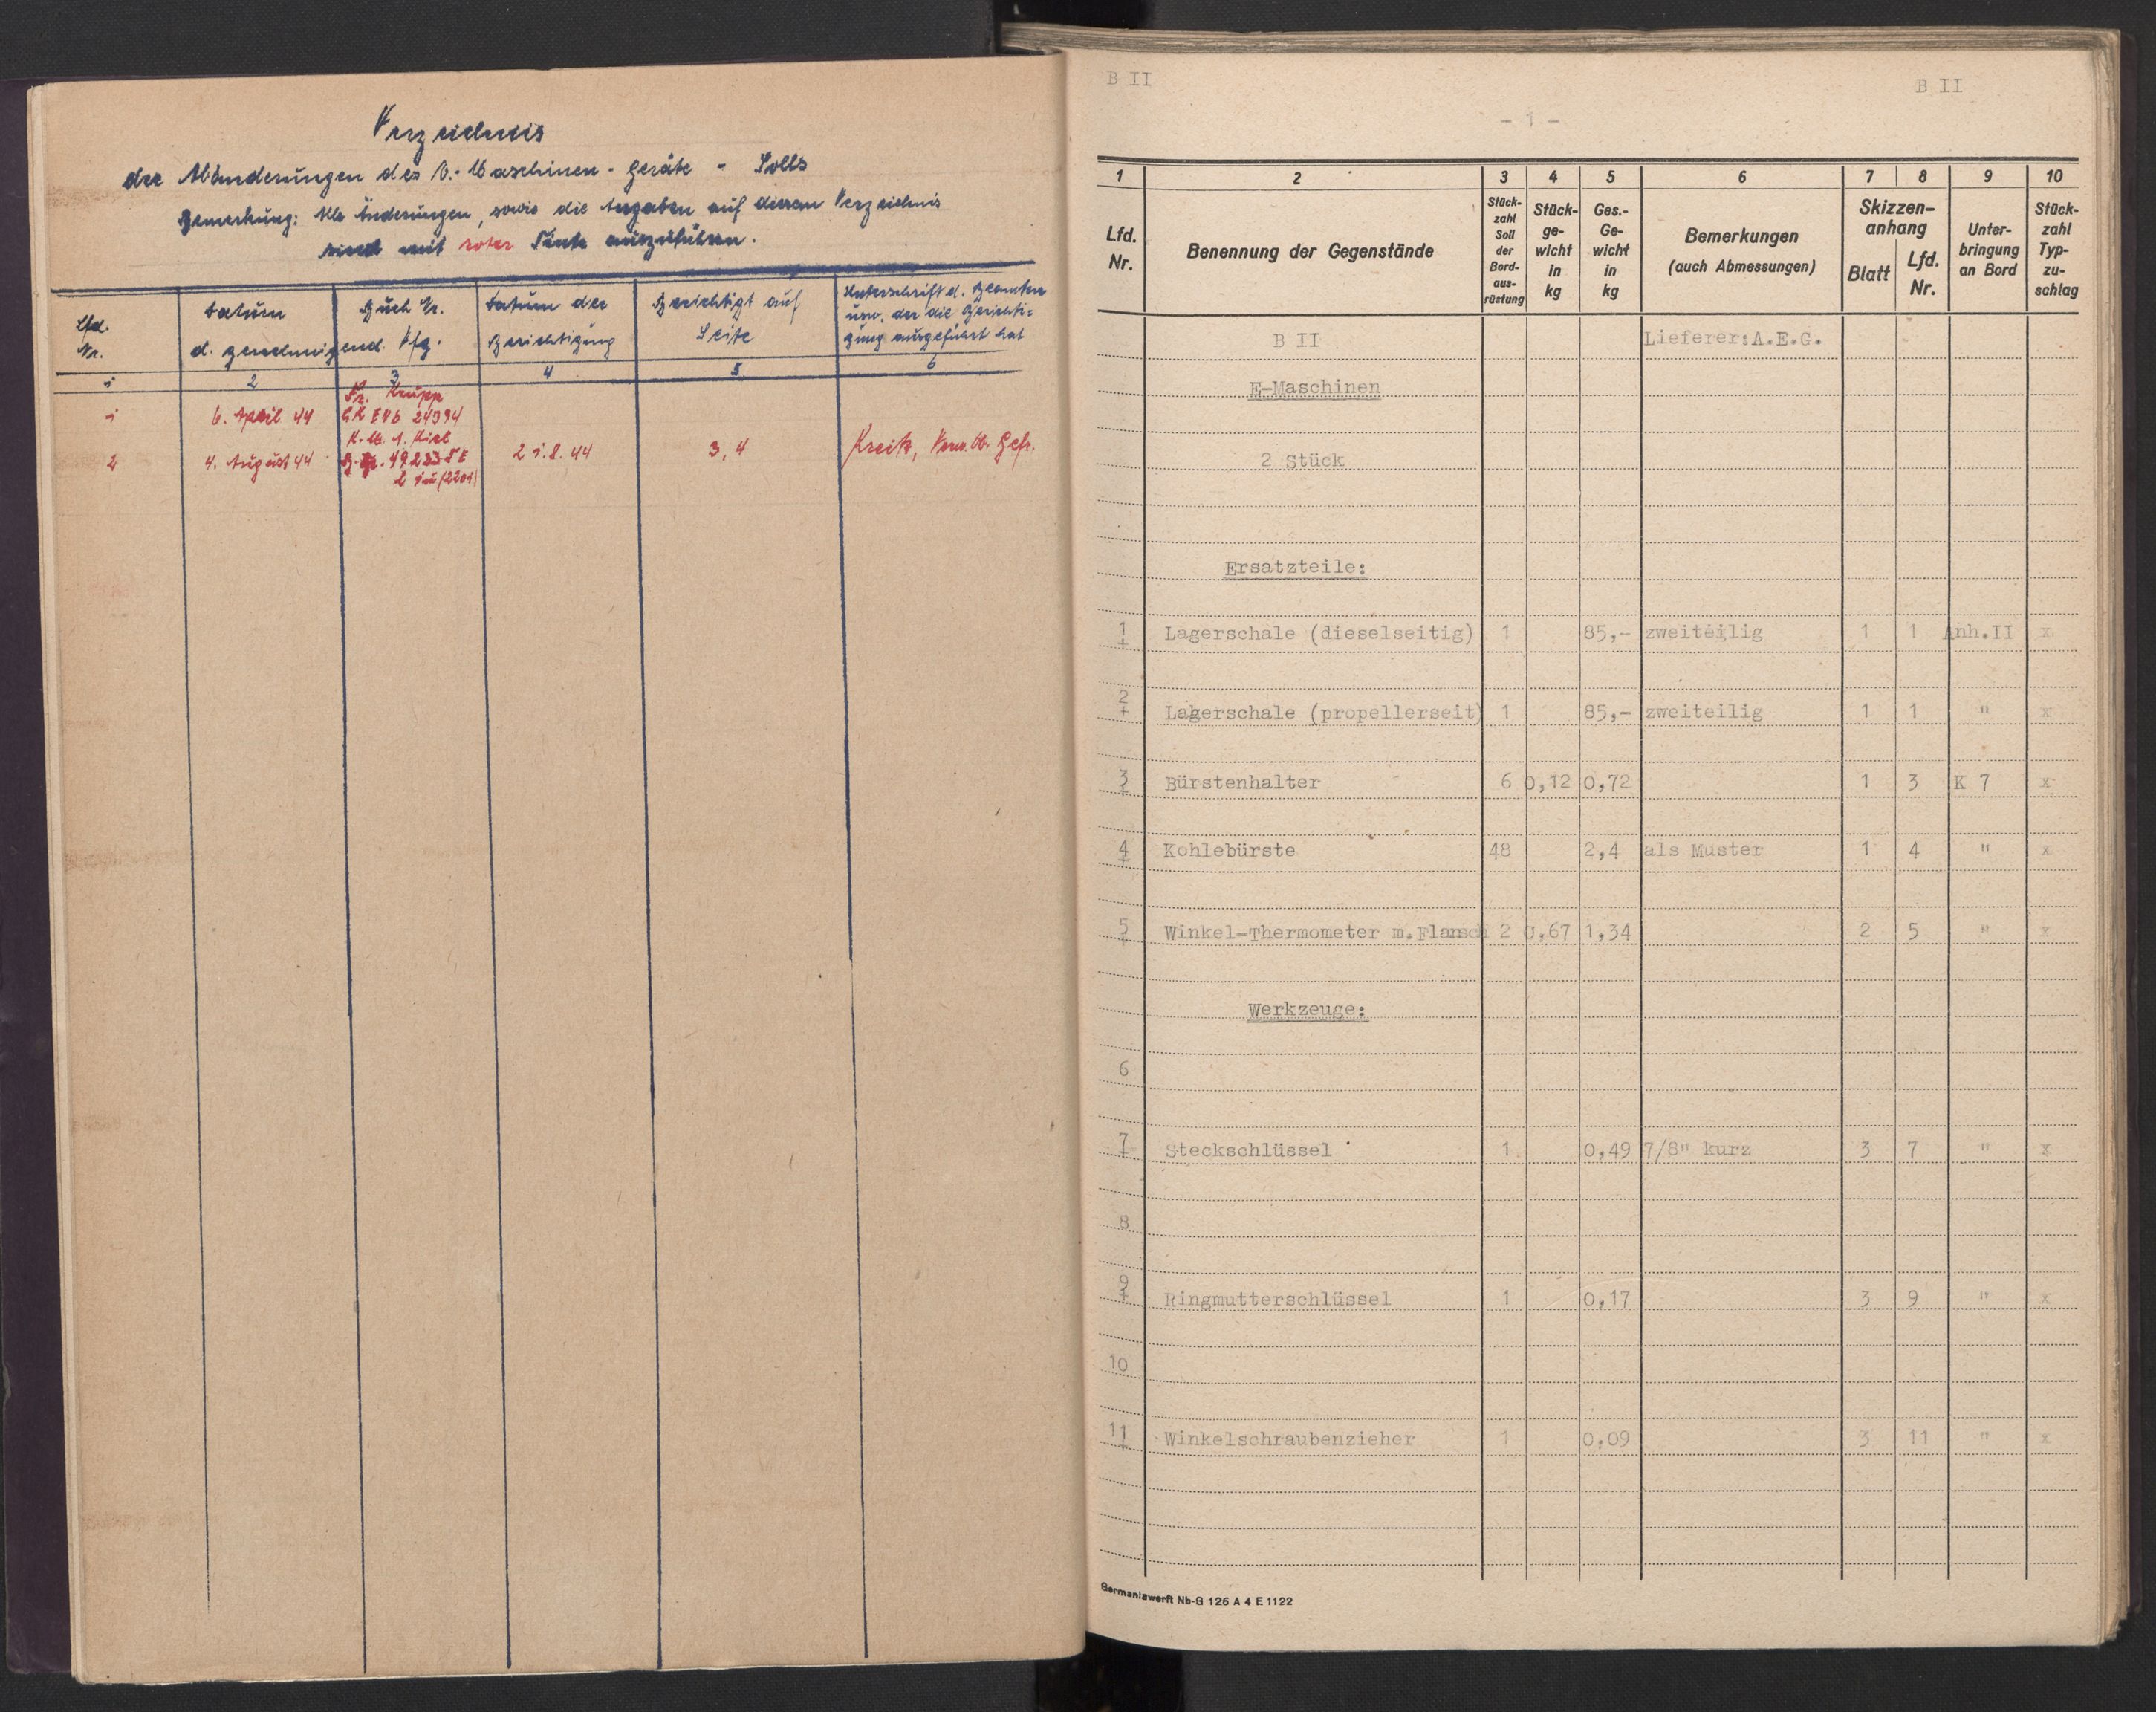 Verzeichnis
der Abänderungen des U.-Maschinen-geräte - Solls
Bemerkung: Alle Änderungen, sowie die Angaben auf diesem Verzeichnis
sind mit roter Tinte auszuführen.
Lfd. Nr.
Datum d. genehmigend. Vfg.
Buch Nr.
Datum der Berichtigung
Berichtigt auf Seite
Unterschrift d. Beamten usw. der die Berichti=
gung ausgeführt hat
1 2 3 4 5 6
Fr. Krupp
1 6. April 44 24394
K.M.A. Kiel
2 4. August 44 21.8.44 3,4 Kreitz, Verw. Gefr.
B II B II
- 1 -
1 2 3 4 5 6 7 8 9 10
Lfd. Nr.
Benennung der Gegenstände
Stück-zahl Soll der Bord-aus-rüstung
Stück-ge-wicht in kg
Ges.-Ge-wicht in kg
Bemerkungen (auch Abmessungen)
Skizzen-anhang
Blatt
Lfd. Nr.
Unter-bringung an Bord
Stück-zahl Typ-zu-schlag
B II Lieferer:A.E.G.
E-Maschinen
2 Stück
Ersatzteile:
1 + Lagerschale (dieselseitig) 1 85,- zweiteilig 1 1 Anh.II x
2 + Lagerschale (propellerseit) 1 85,- zweiteilig 1 1 " x
3 + Bürstenhalter 6 0,12 0,72 1 3 K 7 x
4 + Kohlebürste 48 2,4 als Muster 1 4 " x
5 + Winkel-Thermometer m.Flansch 2 0,67 1,34 2 5 " x
Werkzeuge:
6
7 Steckschlüssel 1 0,49 7/8" kurz 3 7 " x
8
9 + Ringmutterschlüssel 1 0,17 3 9 " x
10
11 + Winkelschraubenzieher 1 0,09 3 11 " x
Germaniawerft Nb-G 126 A 4 E 1122